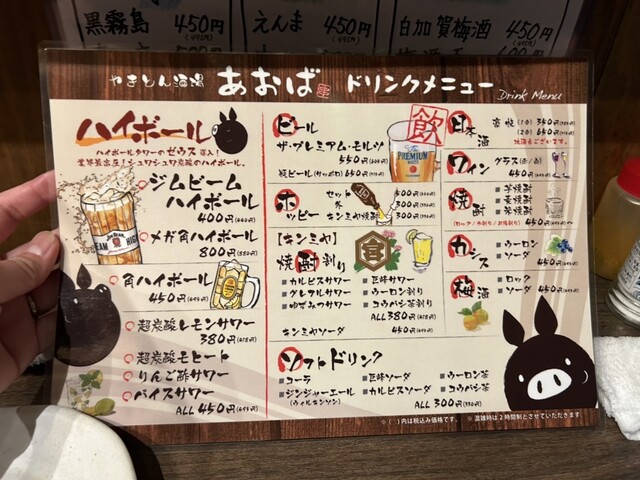 黒霧島
450円
えんま
450円
白加賀梅酒
450円
やきとん酒場 あおば ドリンクメニュー
Drink Menu
ハイボール
ハイボールタワーのゼウス導入!
業界最高圧!シュワシュワ炭酸のハイボール。
ジムビーム
ハイボール
400円(440円)
メガ角ハイボール
800円(880円)
角ハイボール
450円(495円)
超炭酸レモンサワー
380円(418円)
超炭酸モヒート
りんご酢サワー
バイスサワー
ALL 450円(495円)
ビール
ザ・プレミアム・モルツ
550円(605円)
瓶ビール(サッポロ) 650円
飲
PREMIUM
ホッピー
セット
外 300円
キンミヤ焼酎 300円
【キンミヤ】
焼酎割り
カルピスサワー
グレフルサワー
ゆずみつサワー
巨峰サワー
ウーロン割り
コウバシ茶割り
ALL 380円(418円)
キンミヤソーダ 450円(495円)
ソフトドリンク
コーラ
ジンジャーエール
(ウィルキンソン)
巨峰ソーダ
カルピスソーダ
ウーロン茶
コウバシ茶
ALL 300円(330円)
日本酒
豪快 (1合) 350円
(2合) 650円
ワイン
グラス(赤/白)
450円(495円)
焼酎
芋焼酎
麦焼酎
米焼酎
(ロック/水割り/お湯割り) 450円(495円)
カシス
ウーロン
ソーダ
450円(495円)
梅酒
ロック
ソーダ
450円(495円)
※( )内は税込み価格です。 ※混雑時は2時間制とさせていただきます